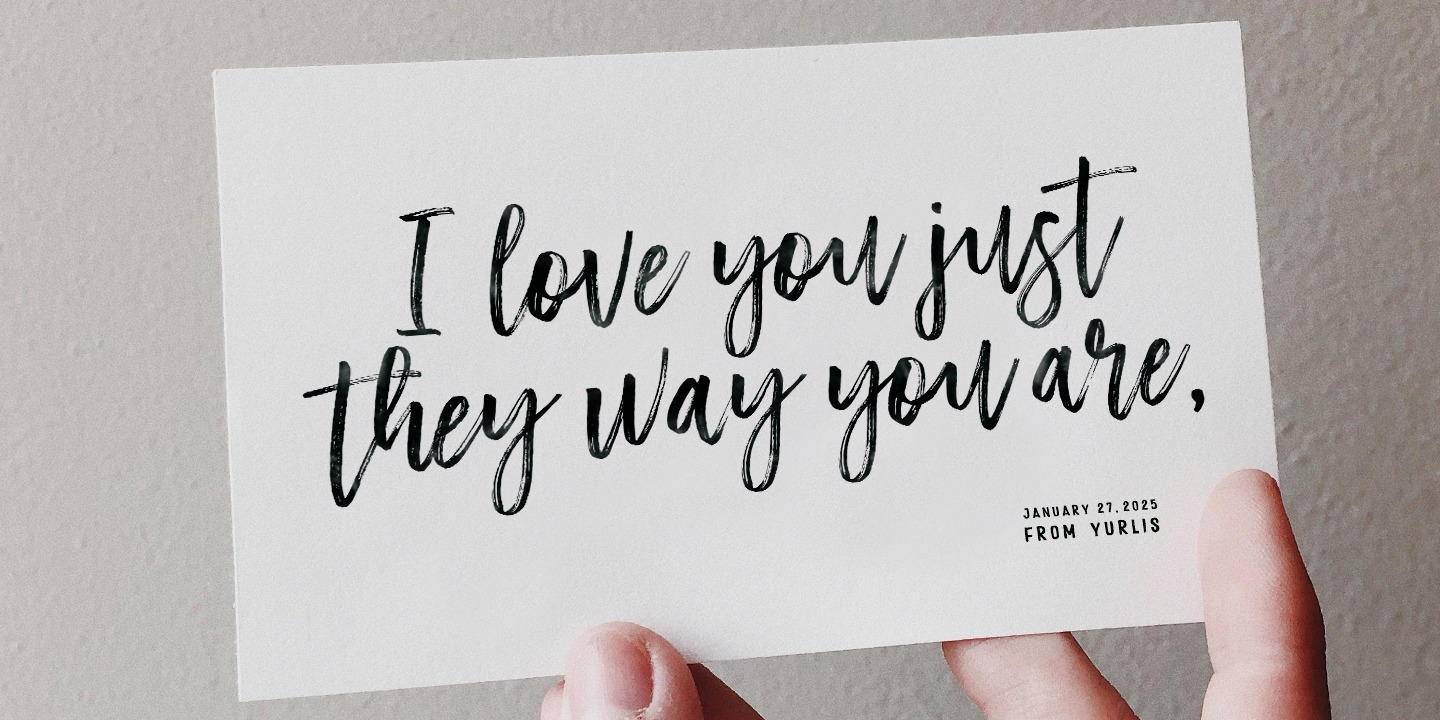 I love you just
they way you are,
JANUARY 27, 2025
FROM YURLIS